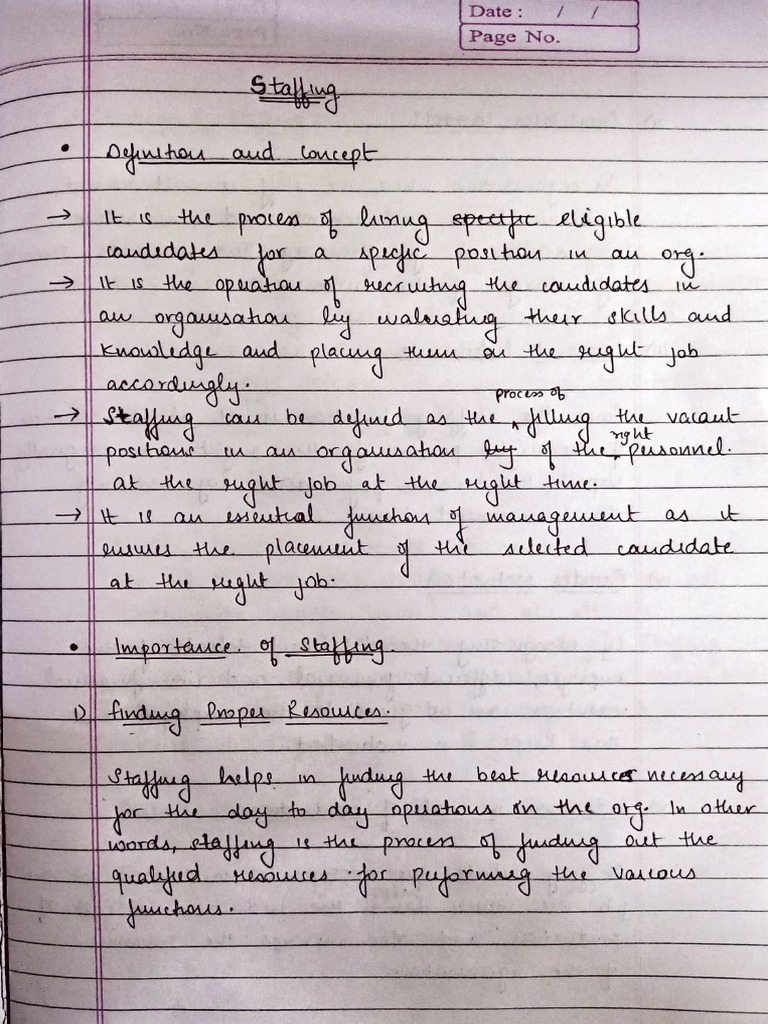 Date : / /
Page No.
Staffing
• Definition and concept
→ It is the process of hiring specific eligible
candidates for a specific position in an org.
→ It is the operation of recruiting the candidates in
an organisation by evaluating their skills and
knowledge and placing them on the right job
accordingly.
→ Staffing can be defined as the process of filling the vacant
positions in an organisation by of the right personnel.
at the right job at the right time.
→ It is an essential function of management as it
ensures the placement of the selected candidate
at the right job.
• Importance of Staffing.
1) finding Proper Resources.
Staffing helps in finding the best resources necessary
for the day to day operations in the org. In other
words, staffing is the process of finding out the
qualified resources for performing the various
functions.